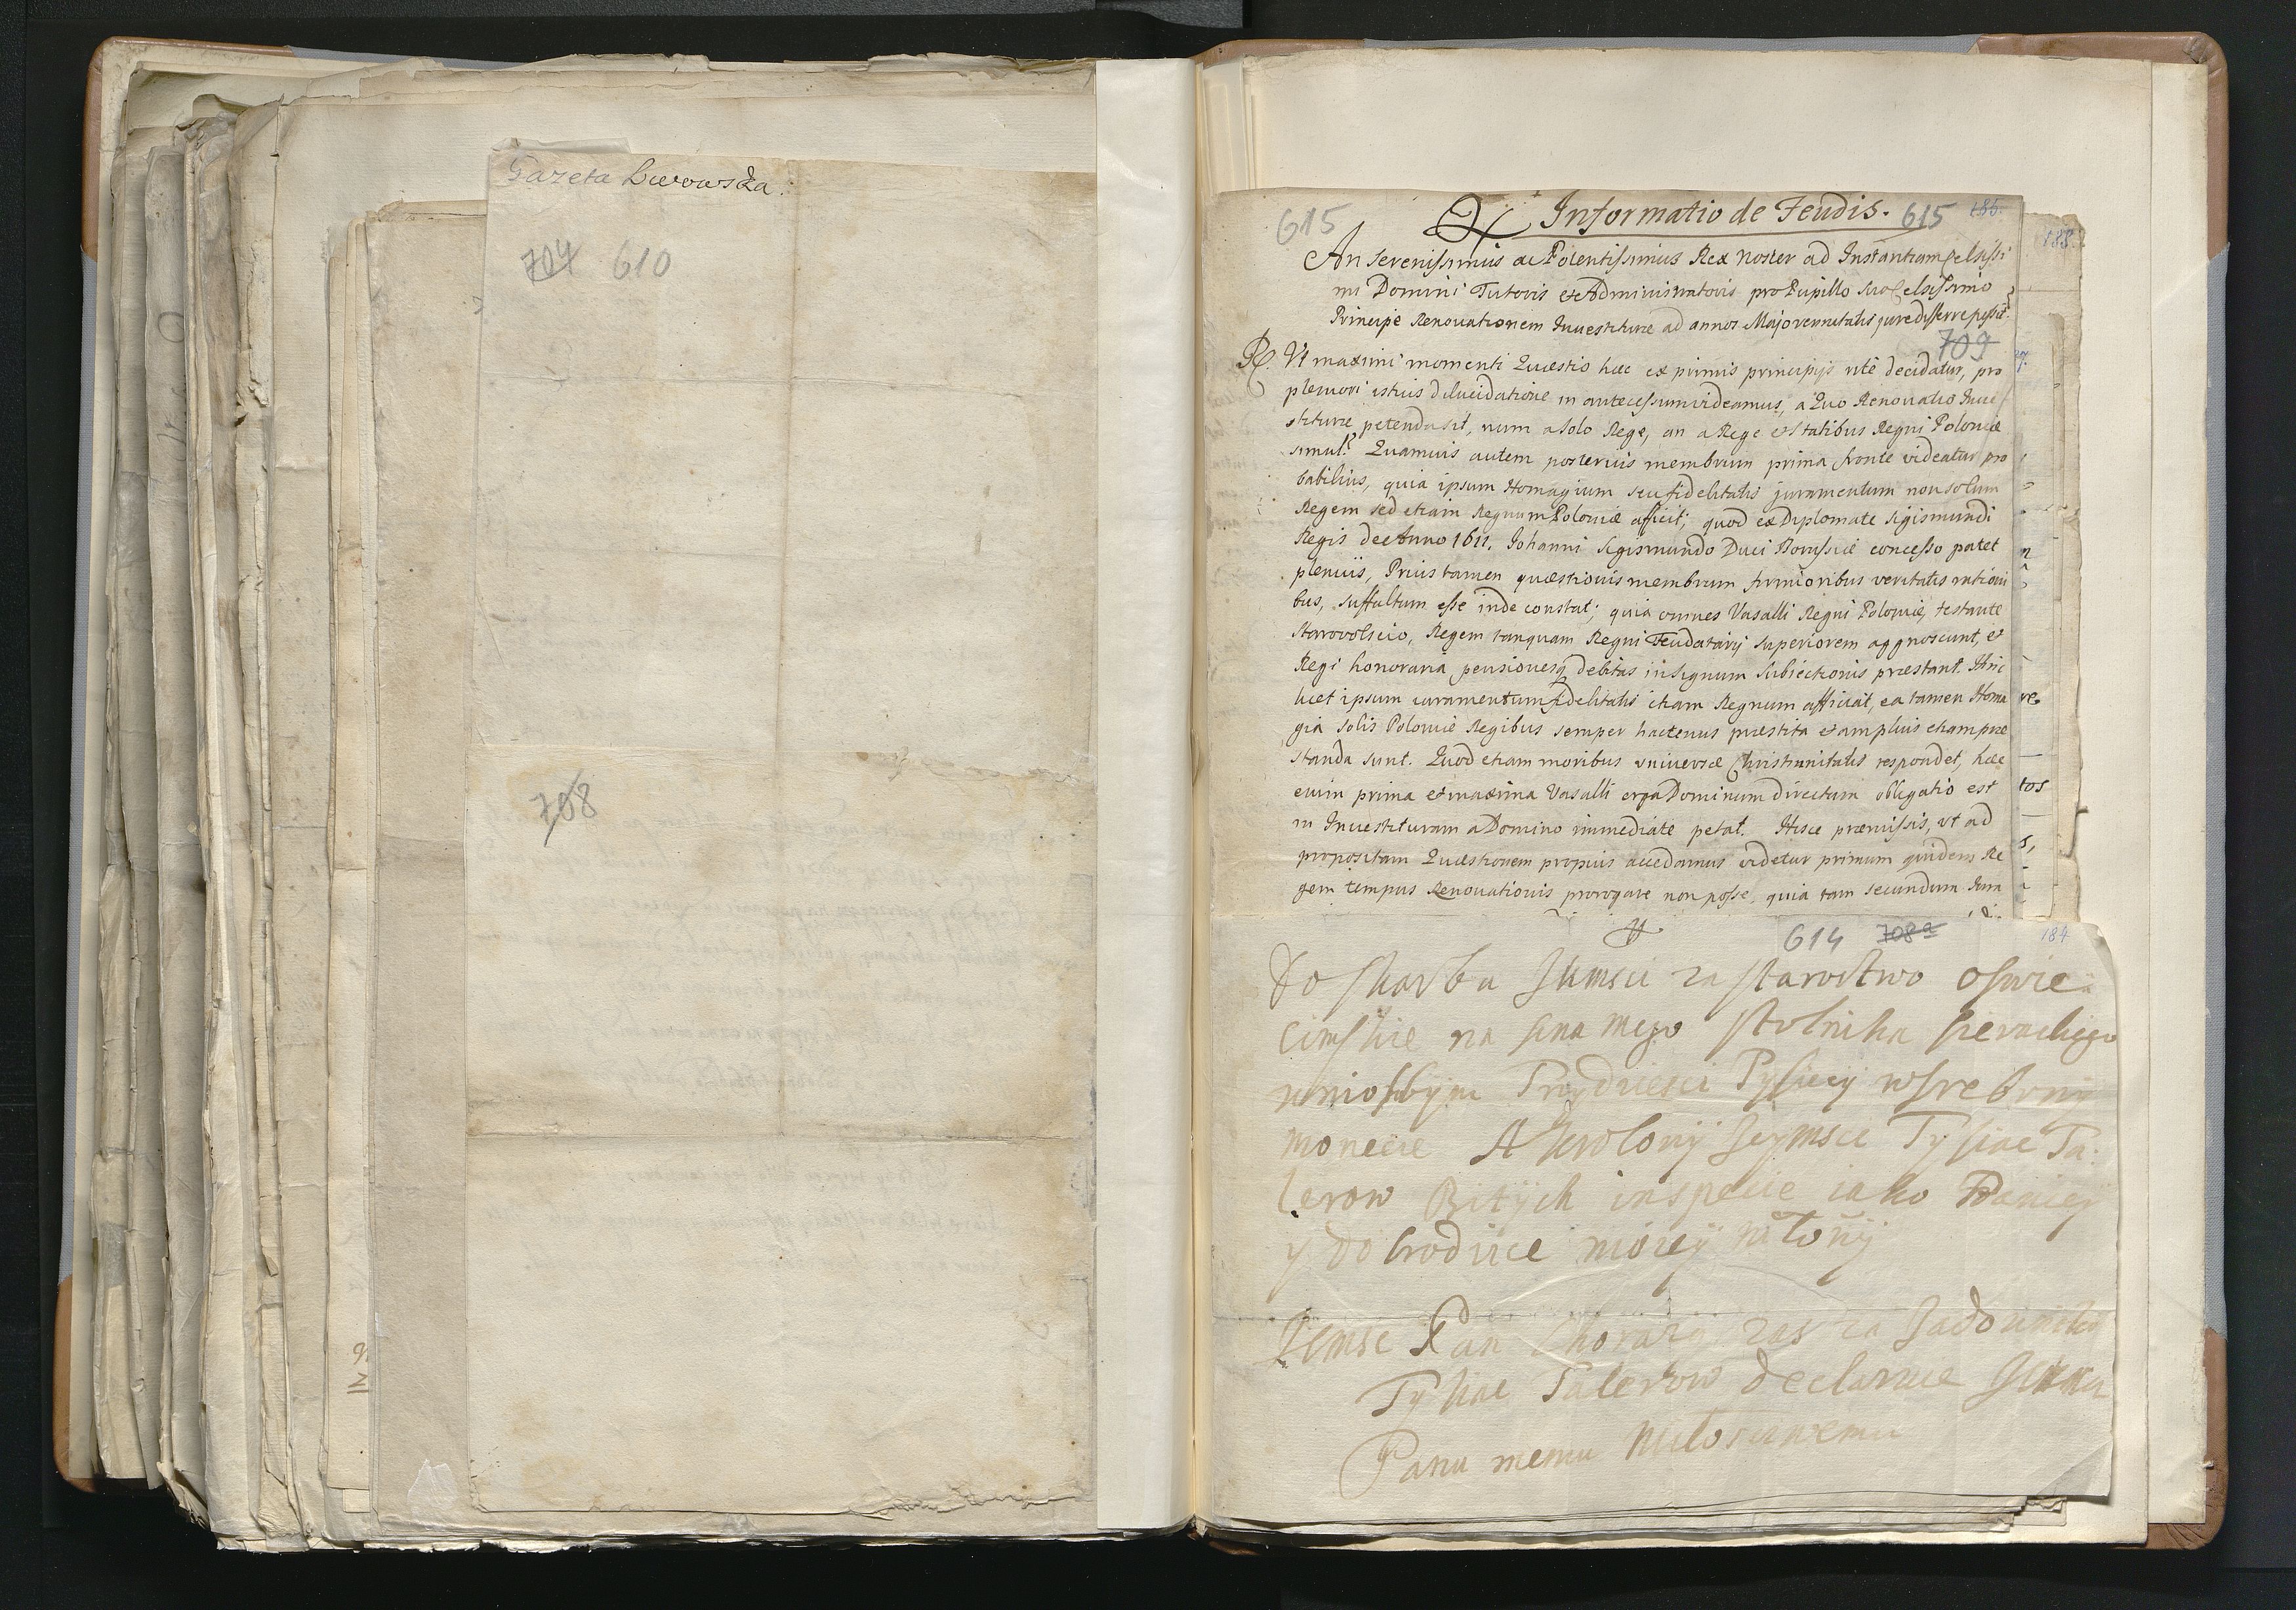 Gazeta Lwowska.
704 610
708
615 Informatio de Feudis. 615 185.
188.
An Serenissimus ac Potentissimus Rex Noster ad Instantiam Celsissi
mi Domini Tutoris et Administratoris pro Pupillo suo Celsissimo
Principe Renovationem Investiturae ad annos Majorennitatis jure differre possit?
709
R. Vt maximi momenti Quaestio haec ex primis principijs rite decidatur, pro
pleniori istius dilucidatione in antecessum videamus, a Quo Renovatio Inve
stiturae petenda sit, num a solo Rege, an a Rege et Statibus Regni Poloniae
simul? Quamuis autem posterius membrum prima fronte videatur pro
babilius, quia ipsum Homagium seu fidelitatis juramentum non solum
Regem sed etiam Regnum Poloniae afficit; quod ex Diplomate Sigismundi
Regis de Anno 1611. Johanni Sigismundo Duci Borussiae concesso patet
plenius, Prius tamen quaestionis membrum firmioribus veritatis rationi
bus, suffultum esse inde constat; quia omnes Vasalli Regni Poloniae, testante
Starovolscio, Regem tanquam Regni Feudatarij superiorem aggnoscunt, et
Regi honoraria pensionesq debitas in signum subiectionis praestant. Hinc
licet ipsum iuramentum fidelitatis etiam Regnum afficiat, ea tamen Homa
gia solis Poloniae Regibus semper hactenus praestita et amplius etiam prae
standa sunt. Quod etiam moribus vniversae Christianitatis respondet, haec
enim prima et maxima Vasalli erga Dominum directum obligatio est
vt Investituram a Domino immediate petat. Hisce praemissis, vt ad
propositam Quaestionem propius accedamus videtur primum quidem Re
gem tempus Renovationis prorogare non posse, quia tam secundum Jura
tos
614 708a 184
Do skarbu Jkmsci za starostwo oswie
cimskie na sina mego stolnika sieradzkiego
wniosłbym Trzydziesci Tysięcy w srebrnij
monecie A Krolowij Jeymsce Tysiac Ta.
lerow Bitych in specie iako Paniey
y dobrodzice moiey
Jemsc Pan Chorazy zas za
Tysiac Talerow declaruie
Panu memu Miłosciwemu